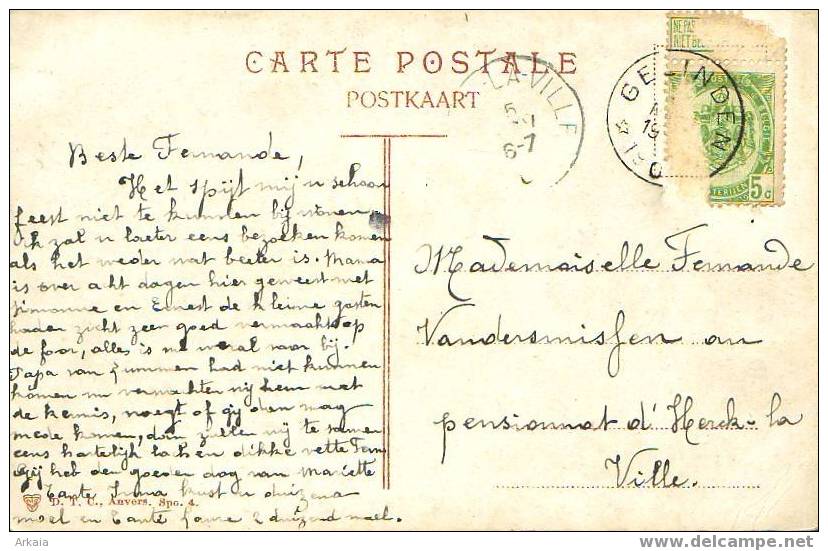 NE PAS
NIET BE
CARTE POSTALE
POSTKAART
GELINDEN
LA-VILLE
5
6-7
5c
Beste Fernande,
Het spijt mij u schoon
feest niet te kunnen bijwonen
ik zal u laeter eens bezoeken komen
als het weder wat beeter is. Mama
is over acht dagen hier geweest met
Simonne en Ernest de kleine gasten
haden zicht zeer goed vermaakt op
de foor, alles is nu weral voor bij.
Papa van Zummen had niet kunnen
komen nu verwachten wij hem met
de kermis, moest of gij dan mag
mede komen, dan zullen wij te samen
eens hartelijk lachen dikke vette Fern
Gij heb den goeden dag van Mariette
Tante Irma kust u duizend
mael en Tante Laure 2 duizend mael.
Mademoiselle Fernande
Vandersmissen au
pensionnat d'Herck-la
Ville.
D. T. C., Anvers. Spc. 4.
Arkaia
www.delcampe.net